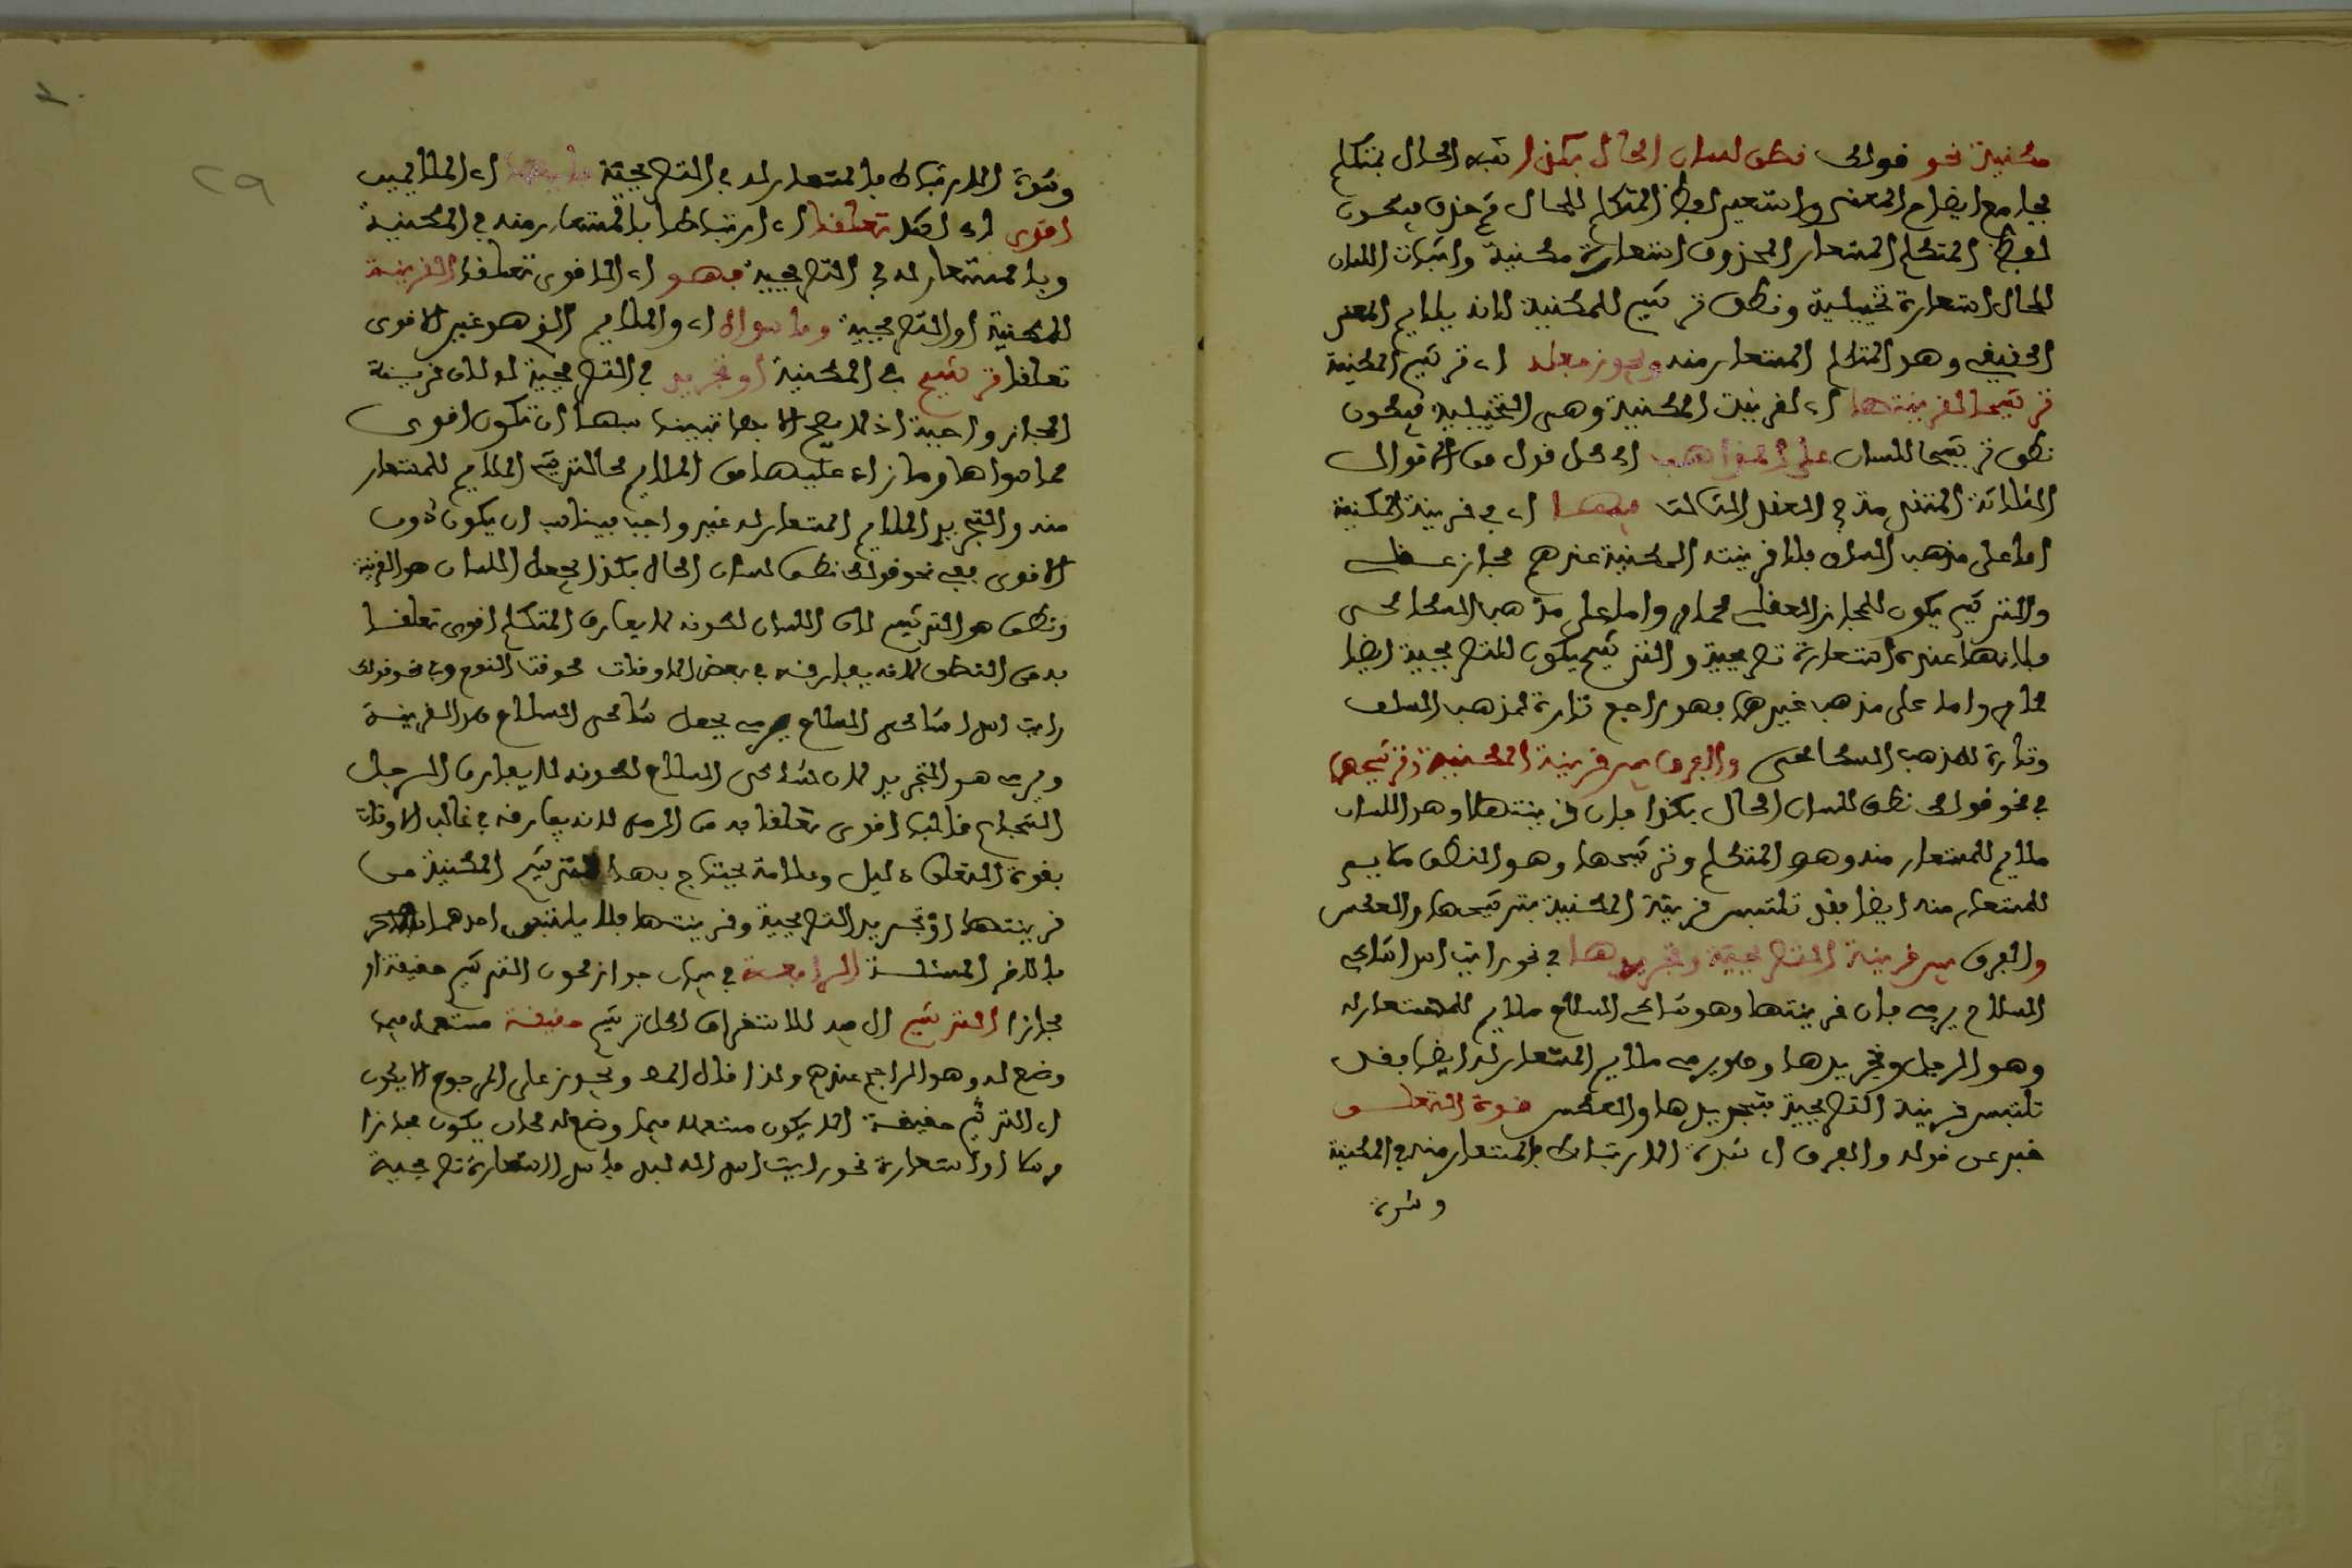 مكنية نحو قولك نطق لسان الحال بكذا شبه الحال بمتكلم
بجامع ايضاح المعنى واستعير لفظ المتكلم للحال ثم حذف فيكون
لفظ المتكلم المستعار المحذوف استعارة مكنية واثبات اللسان
للحال استعارة تخييلية ونطق ترشيح للمكنية لانه يلايم المعنى
الحقيقي وهو المتكلم المستعار منه ويجوز جعله اي ترشيح المكنية
ترشيحا لقرينتها اي لقرينة المكنية وهي التخييلية فيكون
نطق ترشيحا للسان على المذاهب اي كل قول من الاقوال
الثلاثة المتقدمة في العقد الثالث فيها اي في قرينة المكنية
اما على مذهب السلف فلان قرينة المكنية عندهم مجاز عقلي
والترشيح يكون للمجاز العقلي كما مر واما على مذهب السكاكي
فلانها عنده استعارة تصريحية والترشيح يكون للتصريحية ايضا
كما مر واما على مذهب غيرهما فهو راجع تارة لمذهب السلف
وتارة لمذهب السكاكي والفرق بين قرينة المكنية وترشيحها
في نحو قولك نطق لسان الحال بكذا فان قرينتها وهو اللسان
ملايم للمستعار منه وهو المتكلم وترشيحها وهو النطق ملايم
للمستعار منه ايضا فقد تلتبس قرينة المكنية بترشيحها والعكس
والفرق بين قرينة التصريحية وتجريدها في نحو رايت اسدا شاكي
السلاح يرمي فان قرينتها وهو شاكي السلاح ملايم للمستعار له
وهو الرجل وتجريدها وهو يرمي ملايم للمستعار له ايضا فقد
تلتبس قرينة التصريحية بتجريدها والعكس قوة التعلق
خبر عن قوله والفرق اي شدة الارتباط بالمستعار منه في المكنية
وشدة
٢٩
وشدة الارتباط بالمستعار له في التصريحية اي الملايمين
اقوى اي اشد تعلقا اي ارتباطا بالمستعار منه في المكنية
وبالمستعار له في التصريحية فهو اي الاقوى تعلقا القرينة
للمكنية او التصريحية وما سواه اي والملايم الذي هو غير الاقوى
تعلقا ترشيح في المكنية او تجريد في التصريحية له لان قرينة
المجاز واجبة اذ لا يصح الا بها فيناسبها ان تكون اقوى
مما سواها وما زاد عليها من الملايم كالترشيح الملايم للمستعار
منه والتجريد الملايم للمستعار له غير واجب فيناسب ان يكون دون
الاقوى ففي نحو قولك نطق لسان الحال بكذا يجعل اللسان هو القرينة
ونطق هو الترشيح لان اللسان لكونه لا يفارق المتكلم اقوى تعلقا
به من النطق لانه يفارقه في بعض الاوقات كوقت النوم وفي نحو قولك
رايت اسدا شاكي السلاح يرمي يجعل شاكي السلاح هو القرينة
ويرمي هو التجريد لان شاكي السلاح لكونه لا يفارق الرجل
الشجاع غالبا اقوى تعلقا به من الرمي لانه يفارقه في غالب الاوقات
فقوة التعلق دليل وعلامة يحتاج بها لترشيح المكنية من
قرينتها او تجريد التصريحية وقرينتها فلا يلتبس احدهما
بالاخر المسئلة الرابعة في بيان جواز كون الترشيح حقيقة او
مجازا الترشيح ال فيه للاستغراق اي كل ترشيح حقيقة مستعملة فيما
وضع له وهو الراجح عندهم ولذا قال المص ويجوز على المرجوح الا يكون
اي الترشيح حقيقة اي لا يكون مستعملا فيما وضع له كان يكون مجازا
مرسلا او استعارة نحو رايت اسدا له لبد فاسد استعارة تصريحية